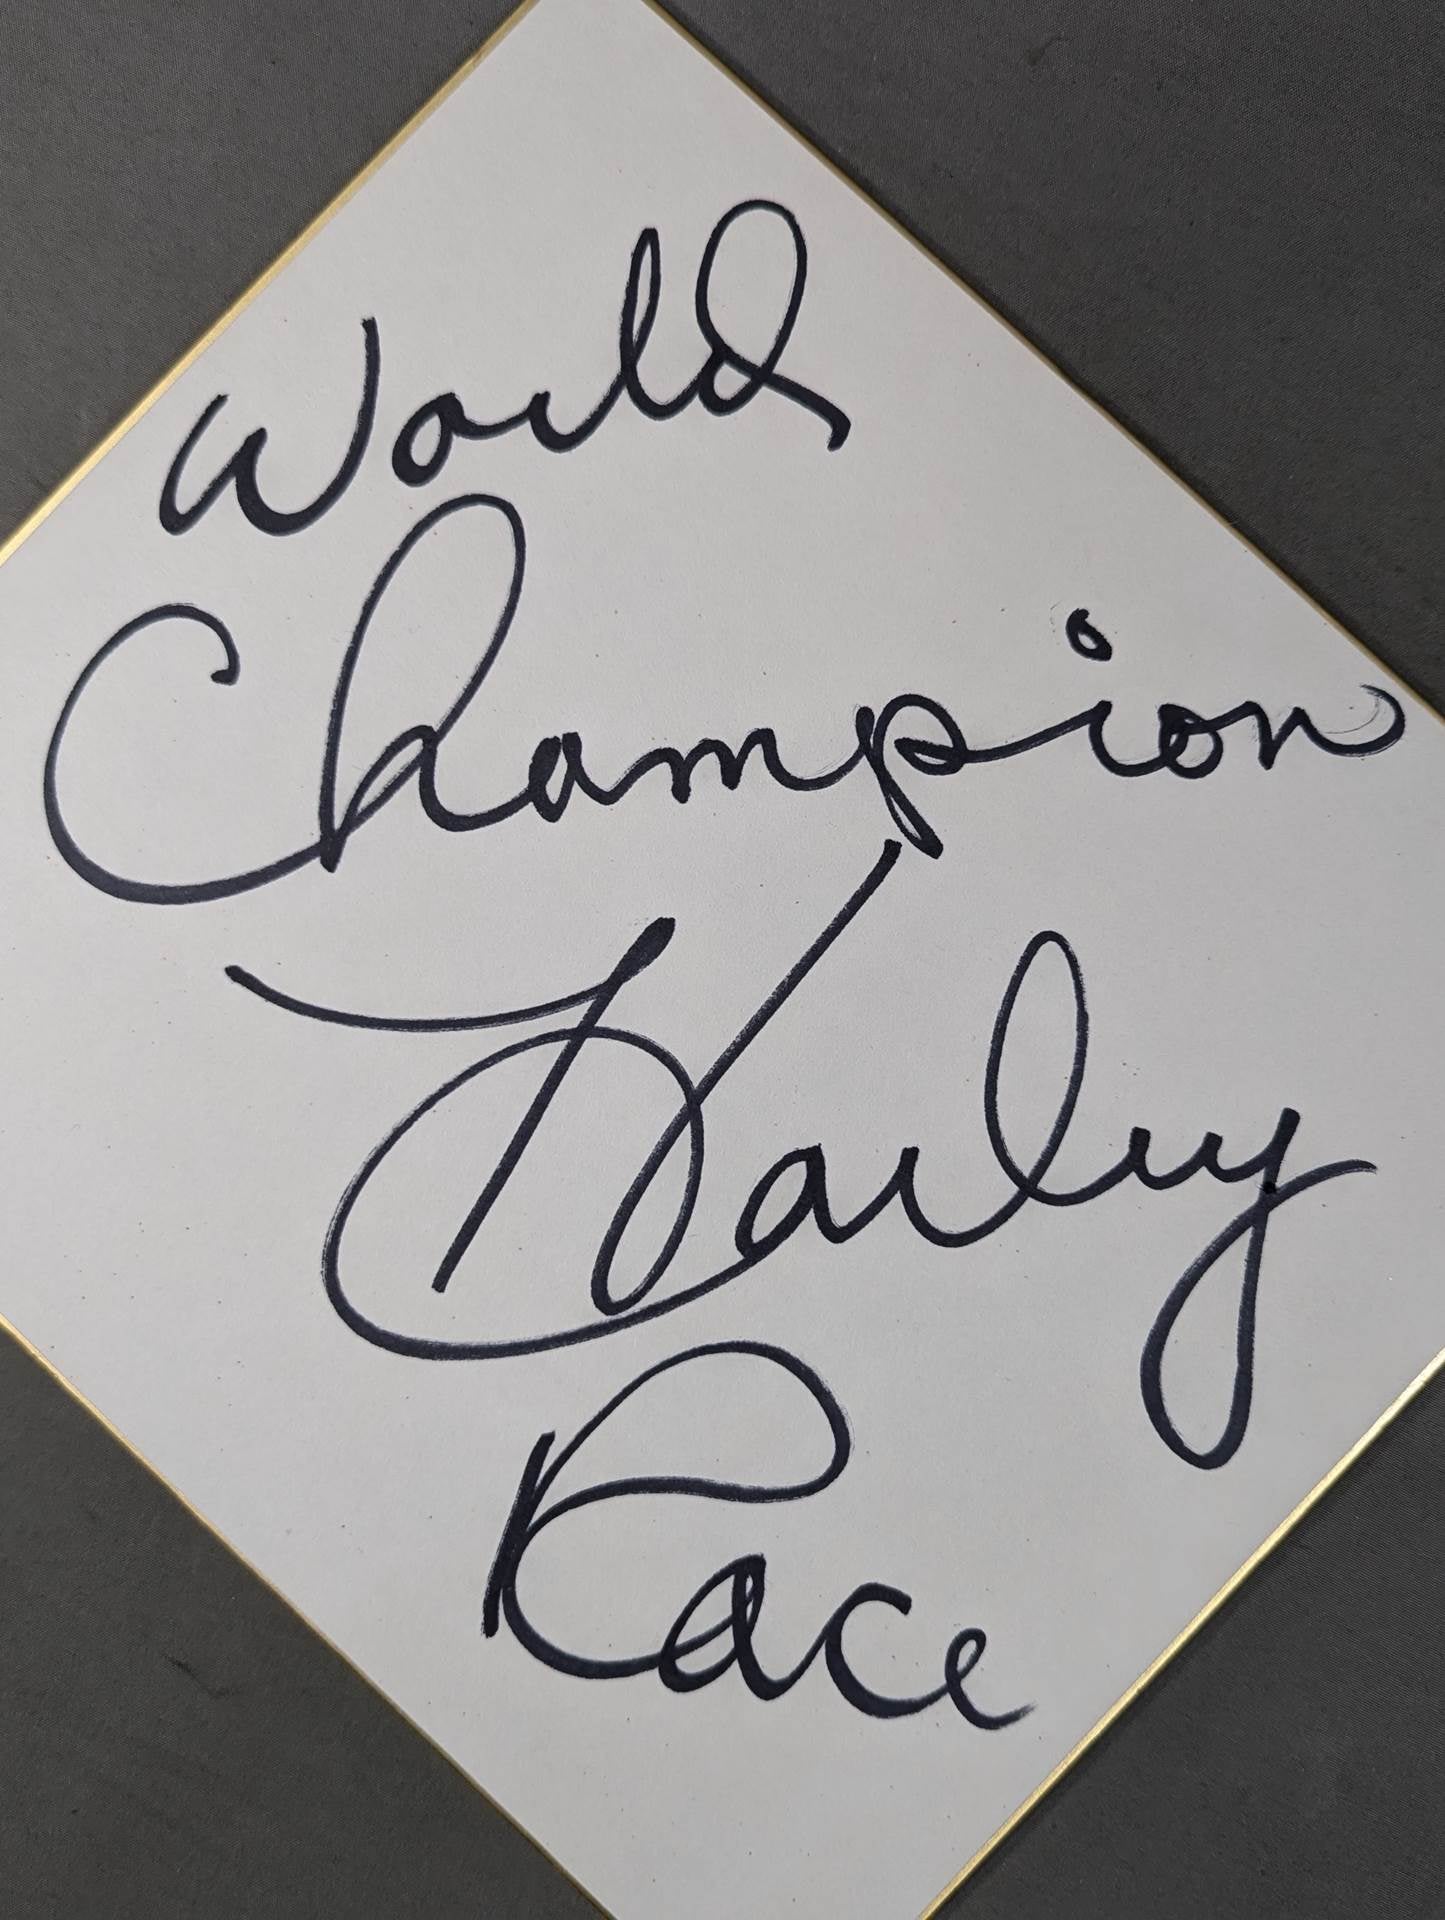 World
Champion
Harley
Race